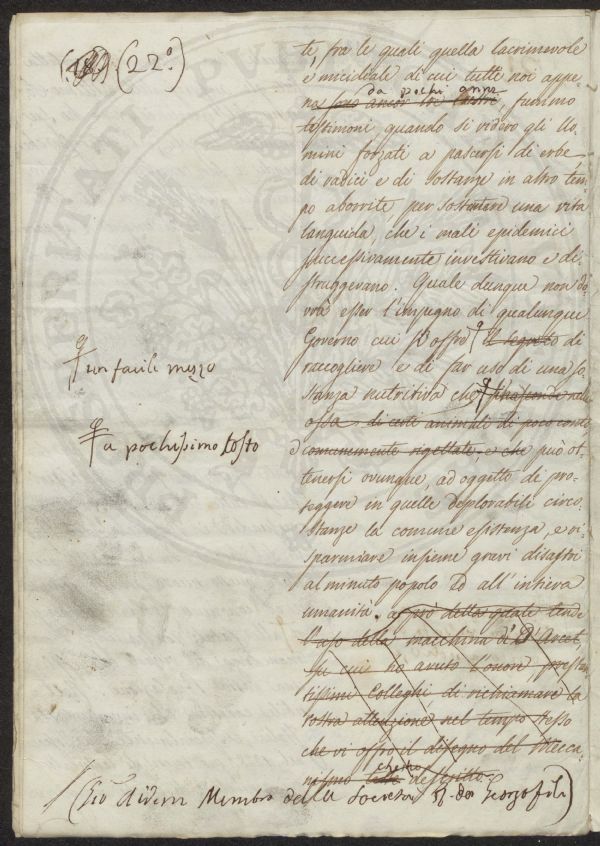 (22º)
te, fra le quali quella lacrimevole
e micidiale di cui tutti noi appe
da pochi anni
na sono ancor tre lustri, fummo
testimoni quando si videro gli Uo
mini forzati a pascersi di erbe
di radici e di sostanze in altro tem
po aborrite, per sostenere una vita
languida, che i mali epidemici
successivamente investivano e di
struggevano. Quale dunque non do
vrà esser l'impegno di qualunque
Governo cui si offre il segreto di
raccogliere e di far uso di una so
un facile mezzo
stanza nutritiva che nascondesi nelle
ossa di certi animali di poco conto
a pochissimo costo
comunemente rigettate e che può ot
tenersi ovunque, ad oggetto di pro
teggere in quelle deplorabili circo
stanze la comune esistenza, e ri
sparmiare insieme gravi disastri
al minuto popolo ed all'intiera
umanità. a prò della quale tende
l'uso della macchina di D'Arcet,
su cui ho avuto l'onore, prestan
tissimi Colleghi di richiamare la
vostra attenzione nel tempo stesso
che vi offro il disegno del Mecca
nismo descritto.
Membro della Società dei Georgofili)